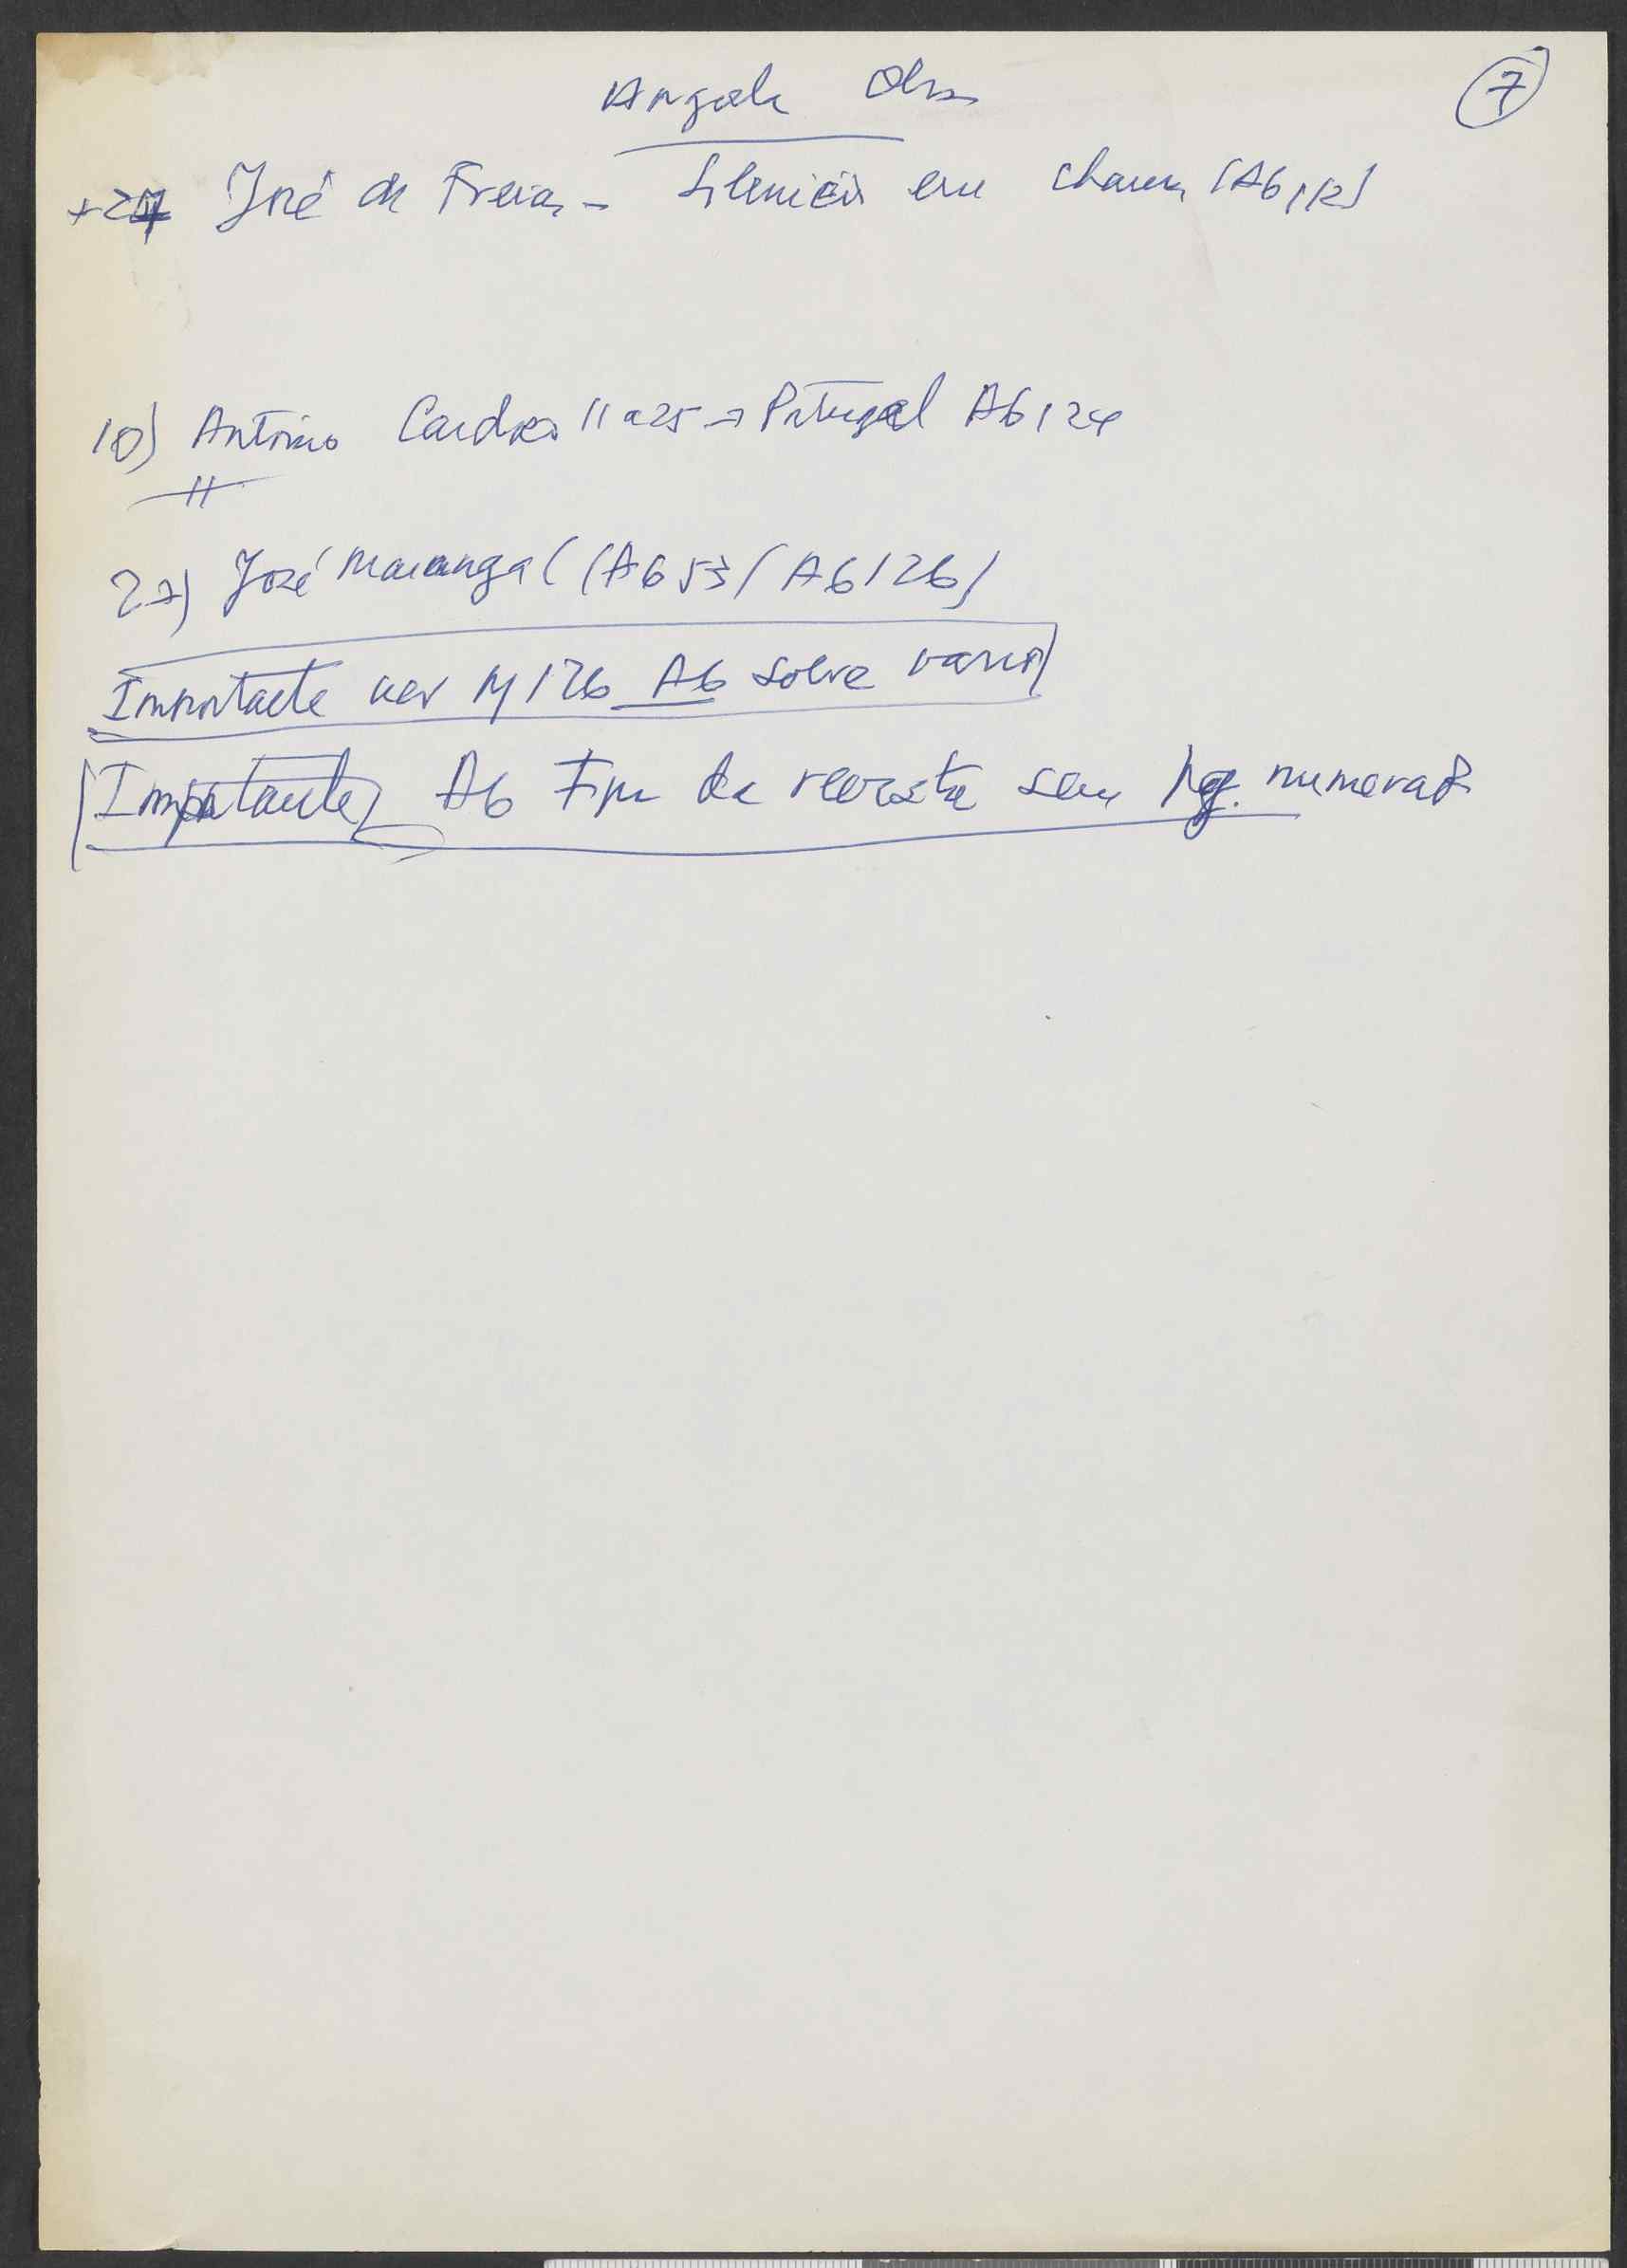 Angola Obras
7
+24 José de Freitas - Silêncio em chamas (A6 112)
10) António Cardoso 11 a 25 → Portugal A6 124
11
27) José Maiangal (A6 53 / A6 126)
Importante ver 126 A6 sobre vários
Importante A6 Fim da revista sem pag. numerad